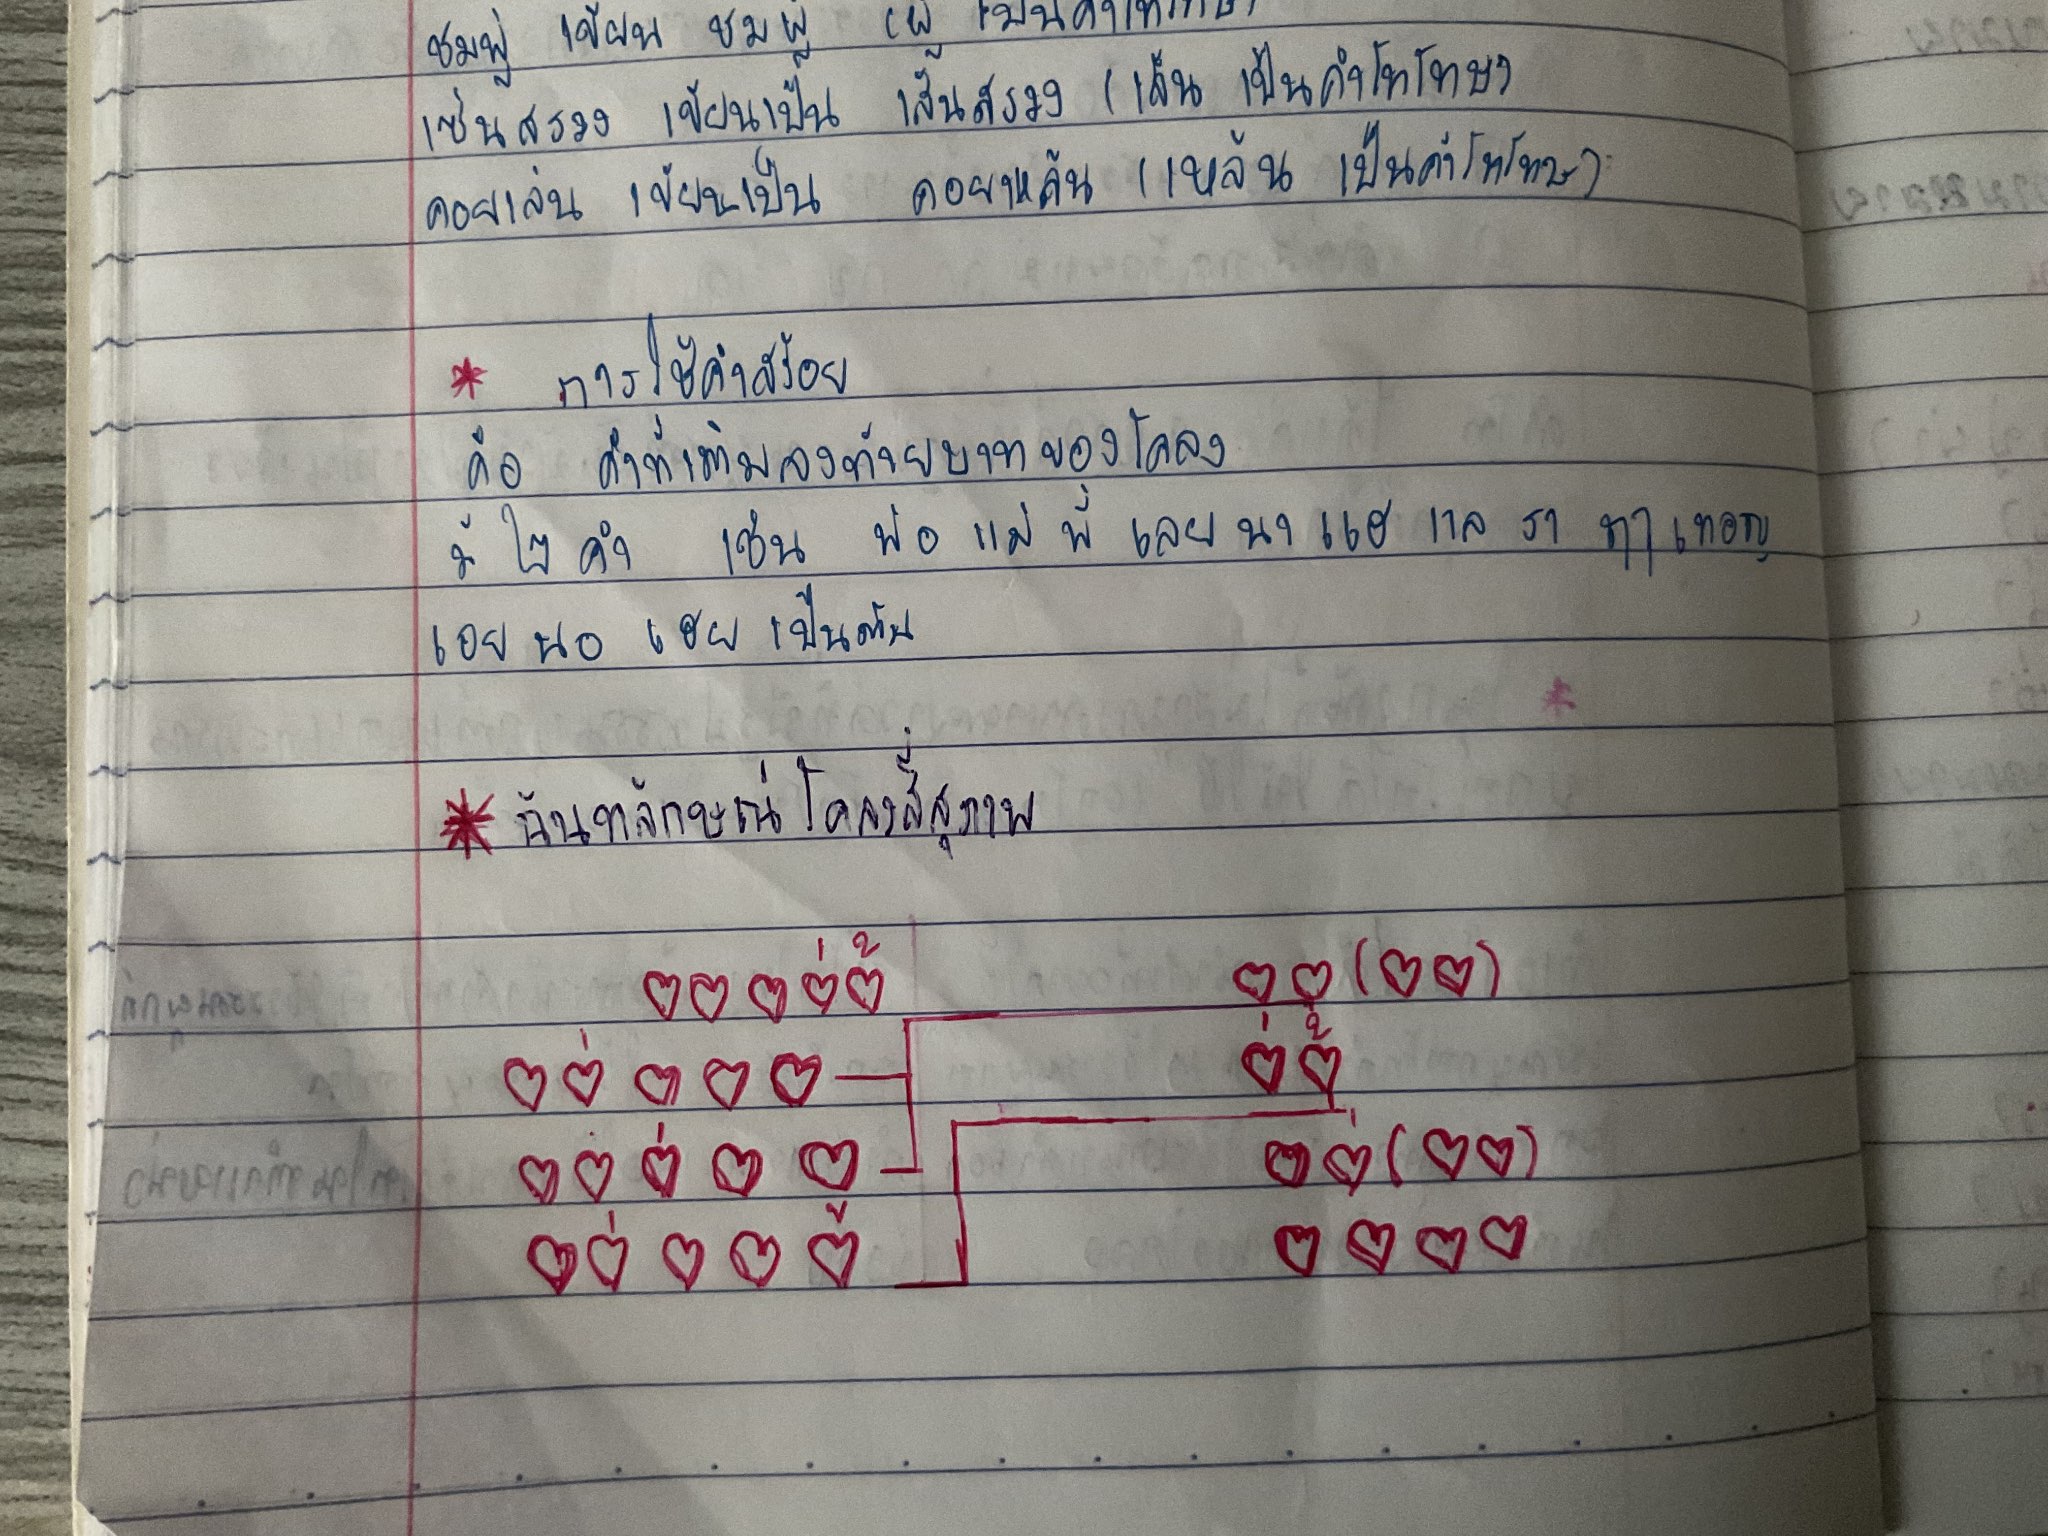 ชมพู่ เขียน ชมผู้ (ผู้ เป็นคำโทโทษ)
เซ่นสรวง เขียนเป็น เส้นสรวง (เส้น เป็นคำโทโทษ)
คอยเล่น เขียนเป็น คอยเหล้น (เหล้น เป็นคำโทโทษ)
* การใช้คำสร้อย
คือ คำที่เติมลงท้ายบาทของโคลง
มี ๒ คำ เช่น พ่อ แม่ พี่ เลย นา แฮ แล รา ฤๅ เทอญ
เอย นอ เฮย เป็นต้น
* ฉันทลักษณ์โคลงสี่สุภาพ